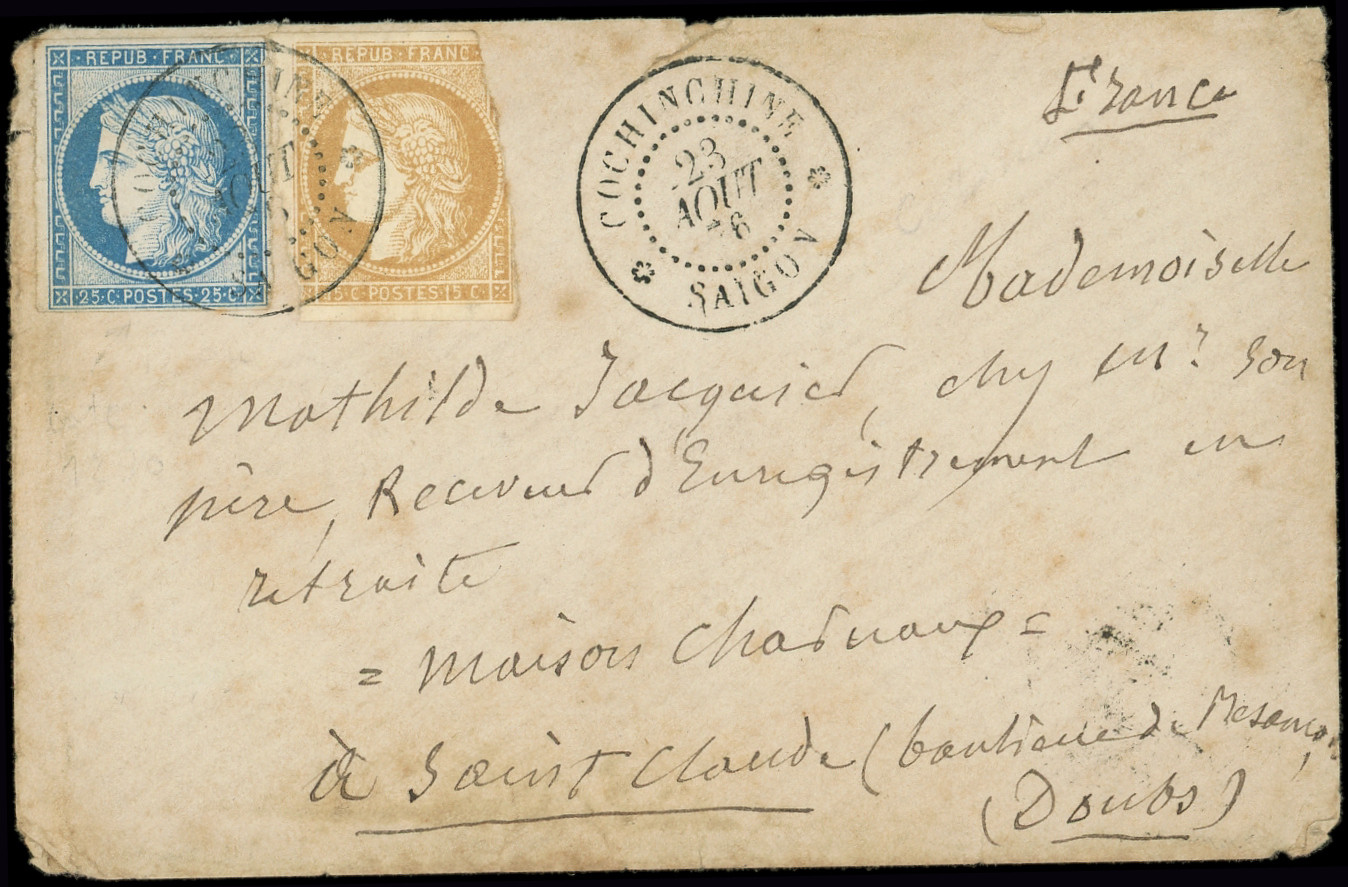 REPUB·FRANC·
25·C·POSTES·25·C·
REPUB·FRANC·
15·C·POSTES·15·C·
COCHINCHINE
AOUT
SAIGON
COCHINCHINE
23
AOUT
76
SAIGON
France
Mademoiselle
Mathilde Jacquier, chez mr. son
père, Receveur d'Enregistrement en
retraite
= maison Charnaux =
à Saint Claude (banlieue de Besançon,
(Doubs)